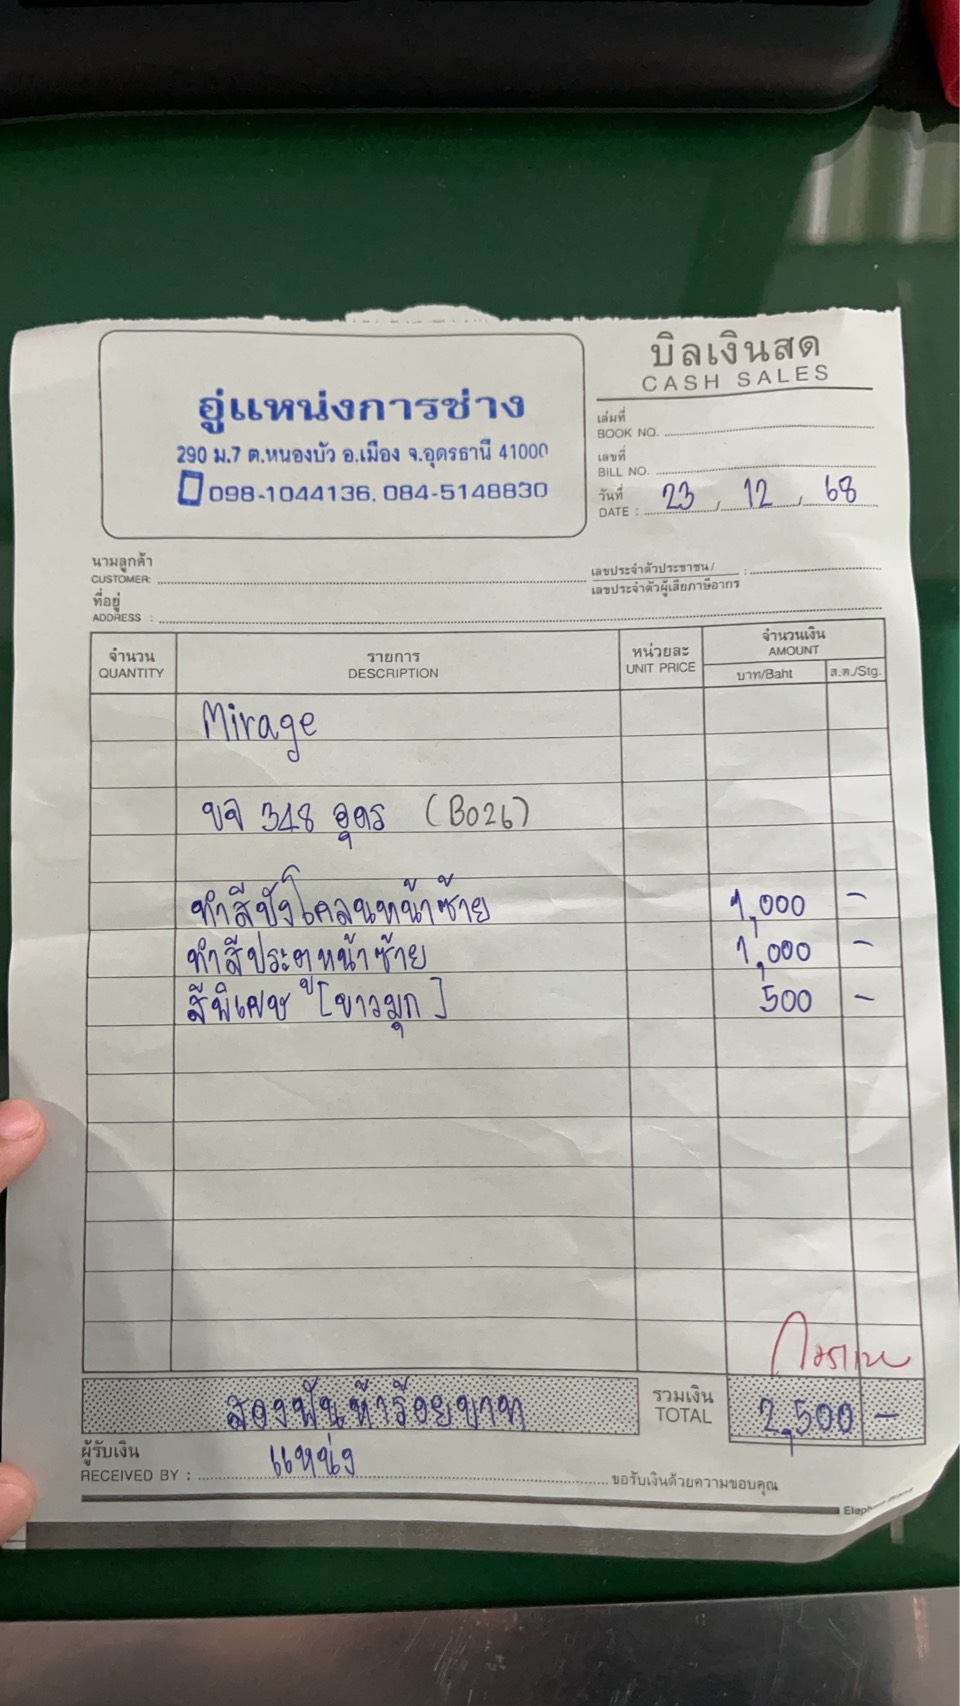 บิลเงินสด
CASH SALES
อู่แหน่งการช่าง
290 ม.7 ต.หนองบัว อ.เมือง จ.อุดรธานี 41000
098-1044136, 084-5148830
เล่มที่
BOOK NO.
เลขที่
BILL NO.
วันที่
DATE : 23 / 12 / 68
นามลูกค้า
CUSTOMER:
เลขประจำตัวประชาชน/
เลขประจำตัวผู้เสียภาษีอากร :
ที่อยู่
ADDRESS :
จำนวน รายการ หน่วยละ จำนวนเงิน
QUANTITY DESCRIPTION UNIT PRICE AMOUNT
บาท/Baht ส.ต./Stg.
Mirage
ขจ 348 อุดร (B026)
ทำสีบังโคลนหน้าซ้าย 1,000 -
ทำสีประตูหน้าซ้าย 1,000 -
สีพิเศษ [ขาวมุก] 500 -
สองพันห้าร้อยบาท รวมเงิน TOTAL 2,500 -
ผู้รับเงิน
RECEIVED BY : แหน่ง ขอรับเงินด้วยความขอบคุณ